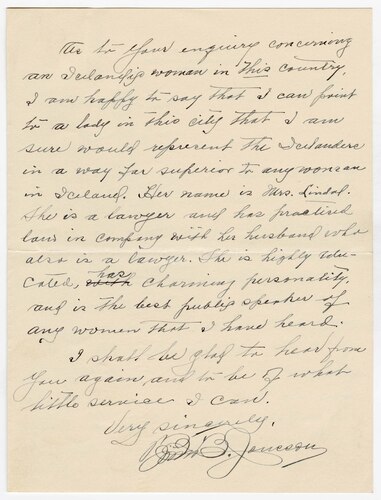 As to your enquiry concerning
an Icelandic woman in this country,
I am happy to say that I can point
to a lady in this city that I am
sure would represent the Icelanders
in a way far superior to any woman
in Iceland. Her name is Mrs. Lindal.
She is a lawyer and has practised
law in company with her husband who
also is a lawyer. She is highly edu-
cated, with has charming personality
and is the best public speaker of
any women that I have heard.
I shall be glad to hear from
you again, and to be of what
little service I can.
Very sincerely,
B. Jonsson